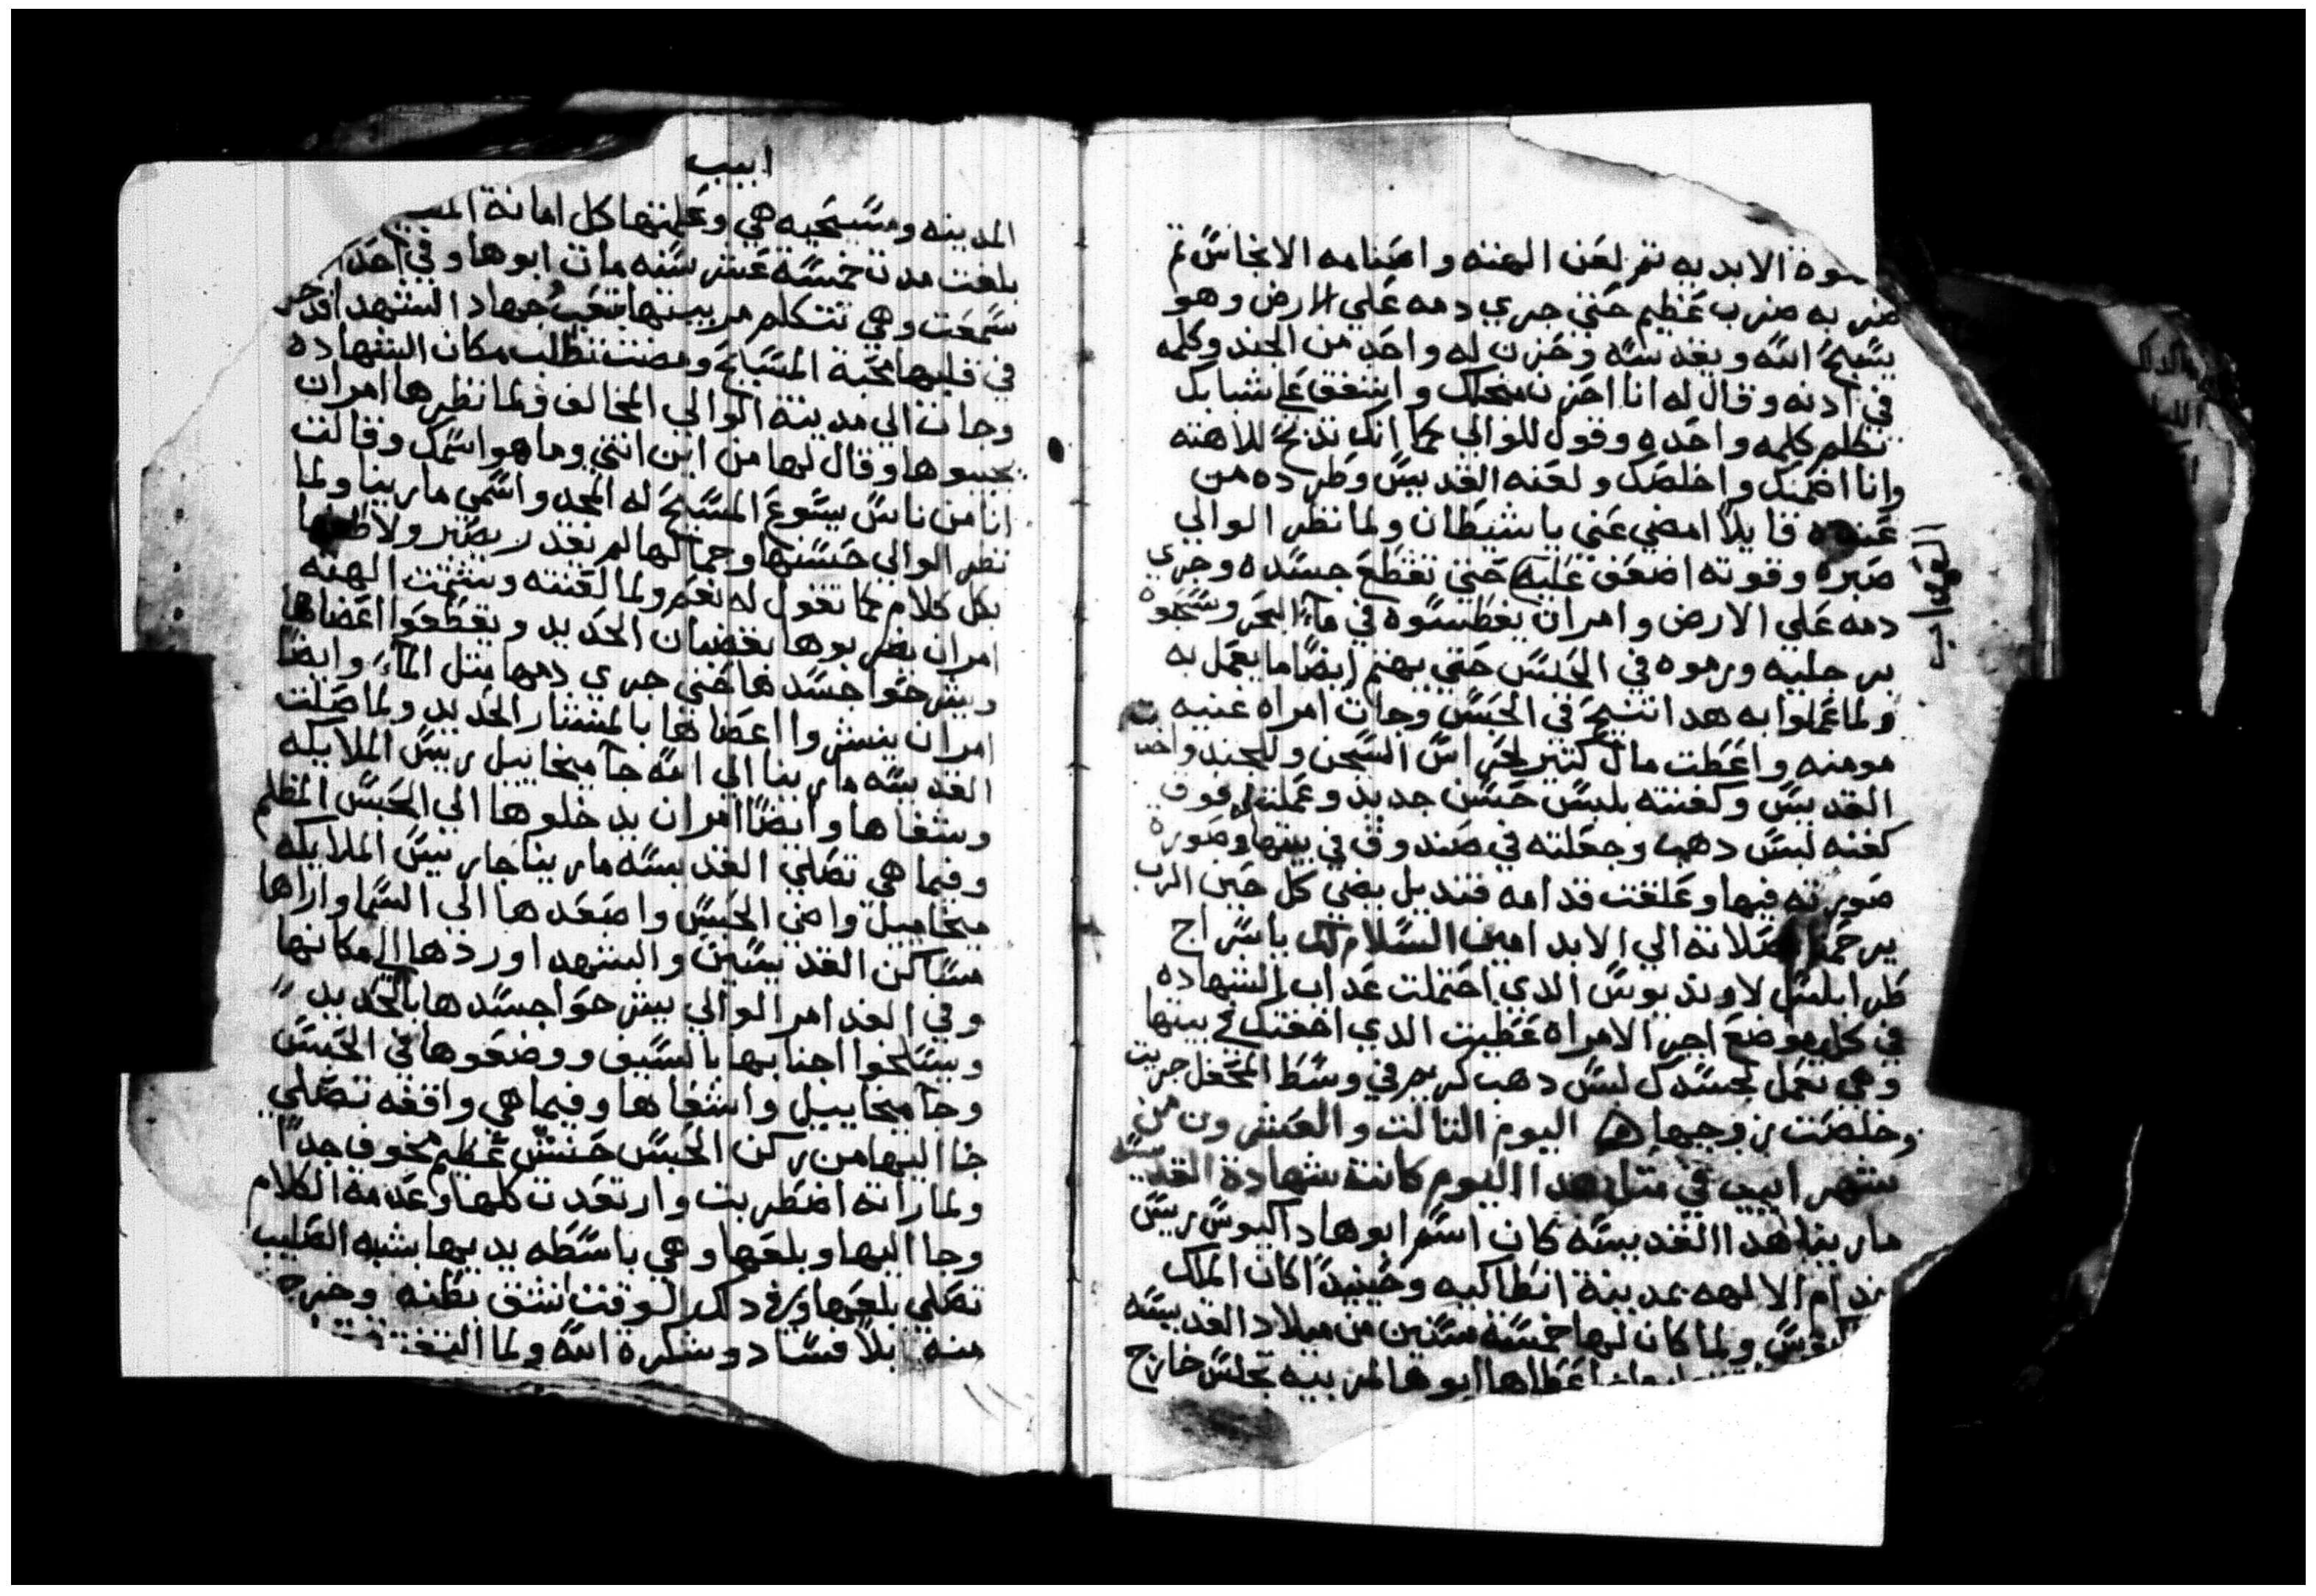 الابديه تم لعن الهته واصنامه الانجاس تم
ضربه ضرب عظيم حتي جري دمه علي الارض وهو
يسبح الله ويقدسه وحزن له واحد من الجند وكلمه
في ادنه وقال له انا احزن منجلك واشفق علي شبابك
تكلم كلمه واحده وقول للوالي كما انك تدبح للاهته
وانا اضمنك واخلصك ولعنه القديس وطرده من
عنده قايلا امضي عني يا شيطان ولما نظر الوالي
صبره وقوته اضعف عليه حتي تقطع جسده وجري
دمه علي الارض وامر ان يغطسوه في مآ البحر وسحبوه
برجليه ورموه في الحبس حتي يهتم ايضا ما يعمل به
ولما عملوا به هدا اتنيح في الحبس وجات امراه غنيه
مومنه واعطت مال كتير لحراس السجن وللجند واخدت
القديس وكفنته بلبس حسن جديد وعملت له فوق
كفنه لبس دهب وجعلته في صندوق في بيتها وصوره
صورته فيها وعلقت قدامه قنديل يضي كل حين الرب
يرحمنا بصلاته الي الابد امين السلام لك يا سراج
طرابلس لاونديوس الدي احتملت عداب الشهاده
في كل موضع اجر الامراه عطيت الدي اخفتك في بيتها
وهي تعمل لجسدك لبس دهب كريم في وسط المحفل جريت
وخلصت زوجها اليوم التالت والعشرون من
شهر ابيب في متل هدا اليوم كانت شهادة القديسه
مارينا هدا القديسه كان اسم ابوها داكيوس ريس
خدام الالهه بمدينة انطاكيه وحينيدا كان الملك
ولما كان لها خمسة سنين من ميلاد القديسه
اعطاها ابوها لمربيه تجلس خارج
ابيب
المدينه ومسيحيه هي وعلمتها كل امانة
بلغت مدت خمسة عشر سنه مات ابوها وفي احد
سمعت وهي تتكلم مربيتها بتعب جهاد الشهدا
في قلبها محبة المسيح ومضت تطلب مكان الشهاده
وجات الي مدينة الوالي المخالف ولما نظرها امر ان
يجيبوها وقال لها من اين انتي وما هو اسمك وقالت
انا من ناس يسوع المسيح له المجد واسمي مارينا ولما
نظر الوالي حسنها وجمالها لم يقدر يصبر ولاطفها
بكل كلام كما تقول له نعم ولما لعنته وشتمت الهته
امر ان يضربوها بقضبان الحديد ويقطعوا اعضاها
ويشرحوا جسدها حتي جري دمها متل المآ وايضا
امر ان ينشروا اعضاها بالمنشار الحديد ولما صلت
القديسه مارينا الي الله جآ ميخاييل ريس الملايكه
وشفاها وايضا امر ان يدخلوها الي الحبس المظلم
وفيما هي تصلي القديسه مارينا جا ريس الملايكه
ميخاييل واضي الحبس واصعدها الي السما واراها
مساكن القديسين والشهدا وردها الي مكانها
وفي الغد امر الوالي يشرحوا جسدها بالحديد
ويسلخوا اجنابها بالسيف ووضعوها في الحبس
وجآ ميخاييل واشفاها وفيما هي واقفه تصلي
جا اليها من ركن الحبس حنش عظيم مخوف جدا
ولما راته اضطربت وارتعدت كلها وعدمة الكلام
وجا اليها وبلعها وهي باسطه يديها بشبه الصليب
تصلي بلعها وفي دلك الوقت انشق بطنه وخرجه
منه بلا فساد وشكرة الله ولما